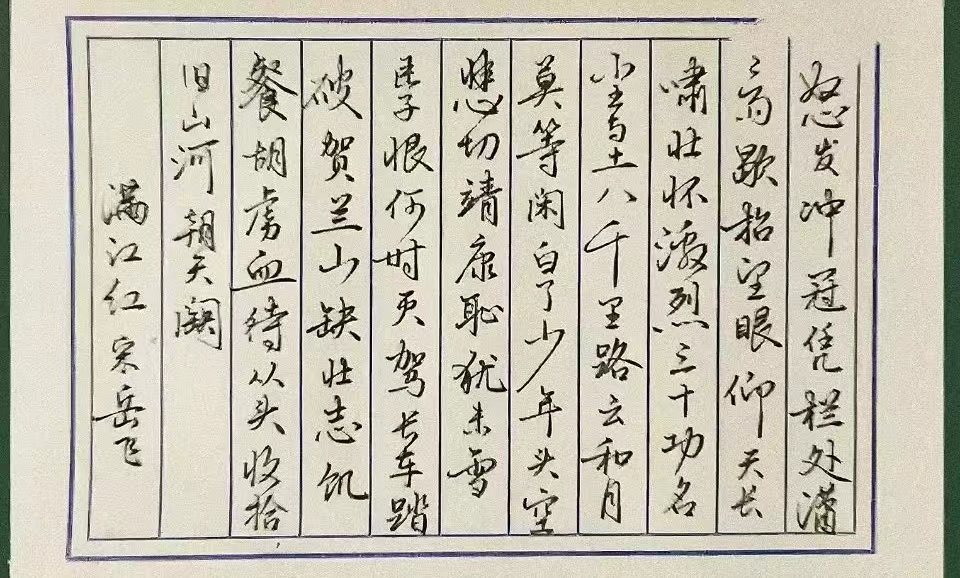 怒发冲冠凭栏处潇
〻雨歇抬望眼仰天长
啸壮怀激烈三十功名
尘与土八千里路云和月
莫等闲白了少年头空
悲切靖康耻犹未雪
臣子恨何时灭驾长车踏
破贺兰山缺壮志饥
餐胡虏血待从头收拾
旧山河朝天阙
满江红 宋岳飞